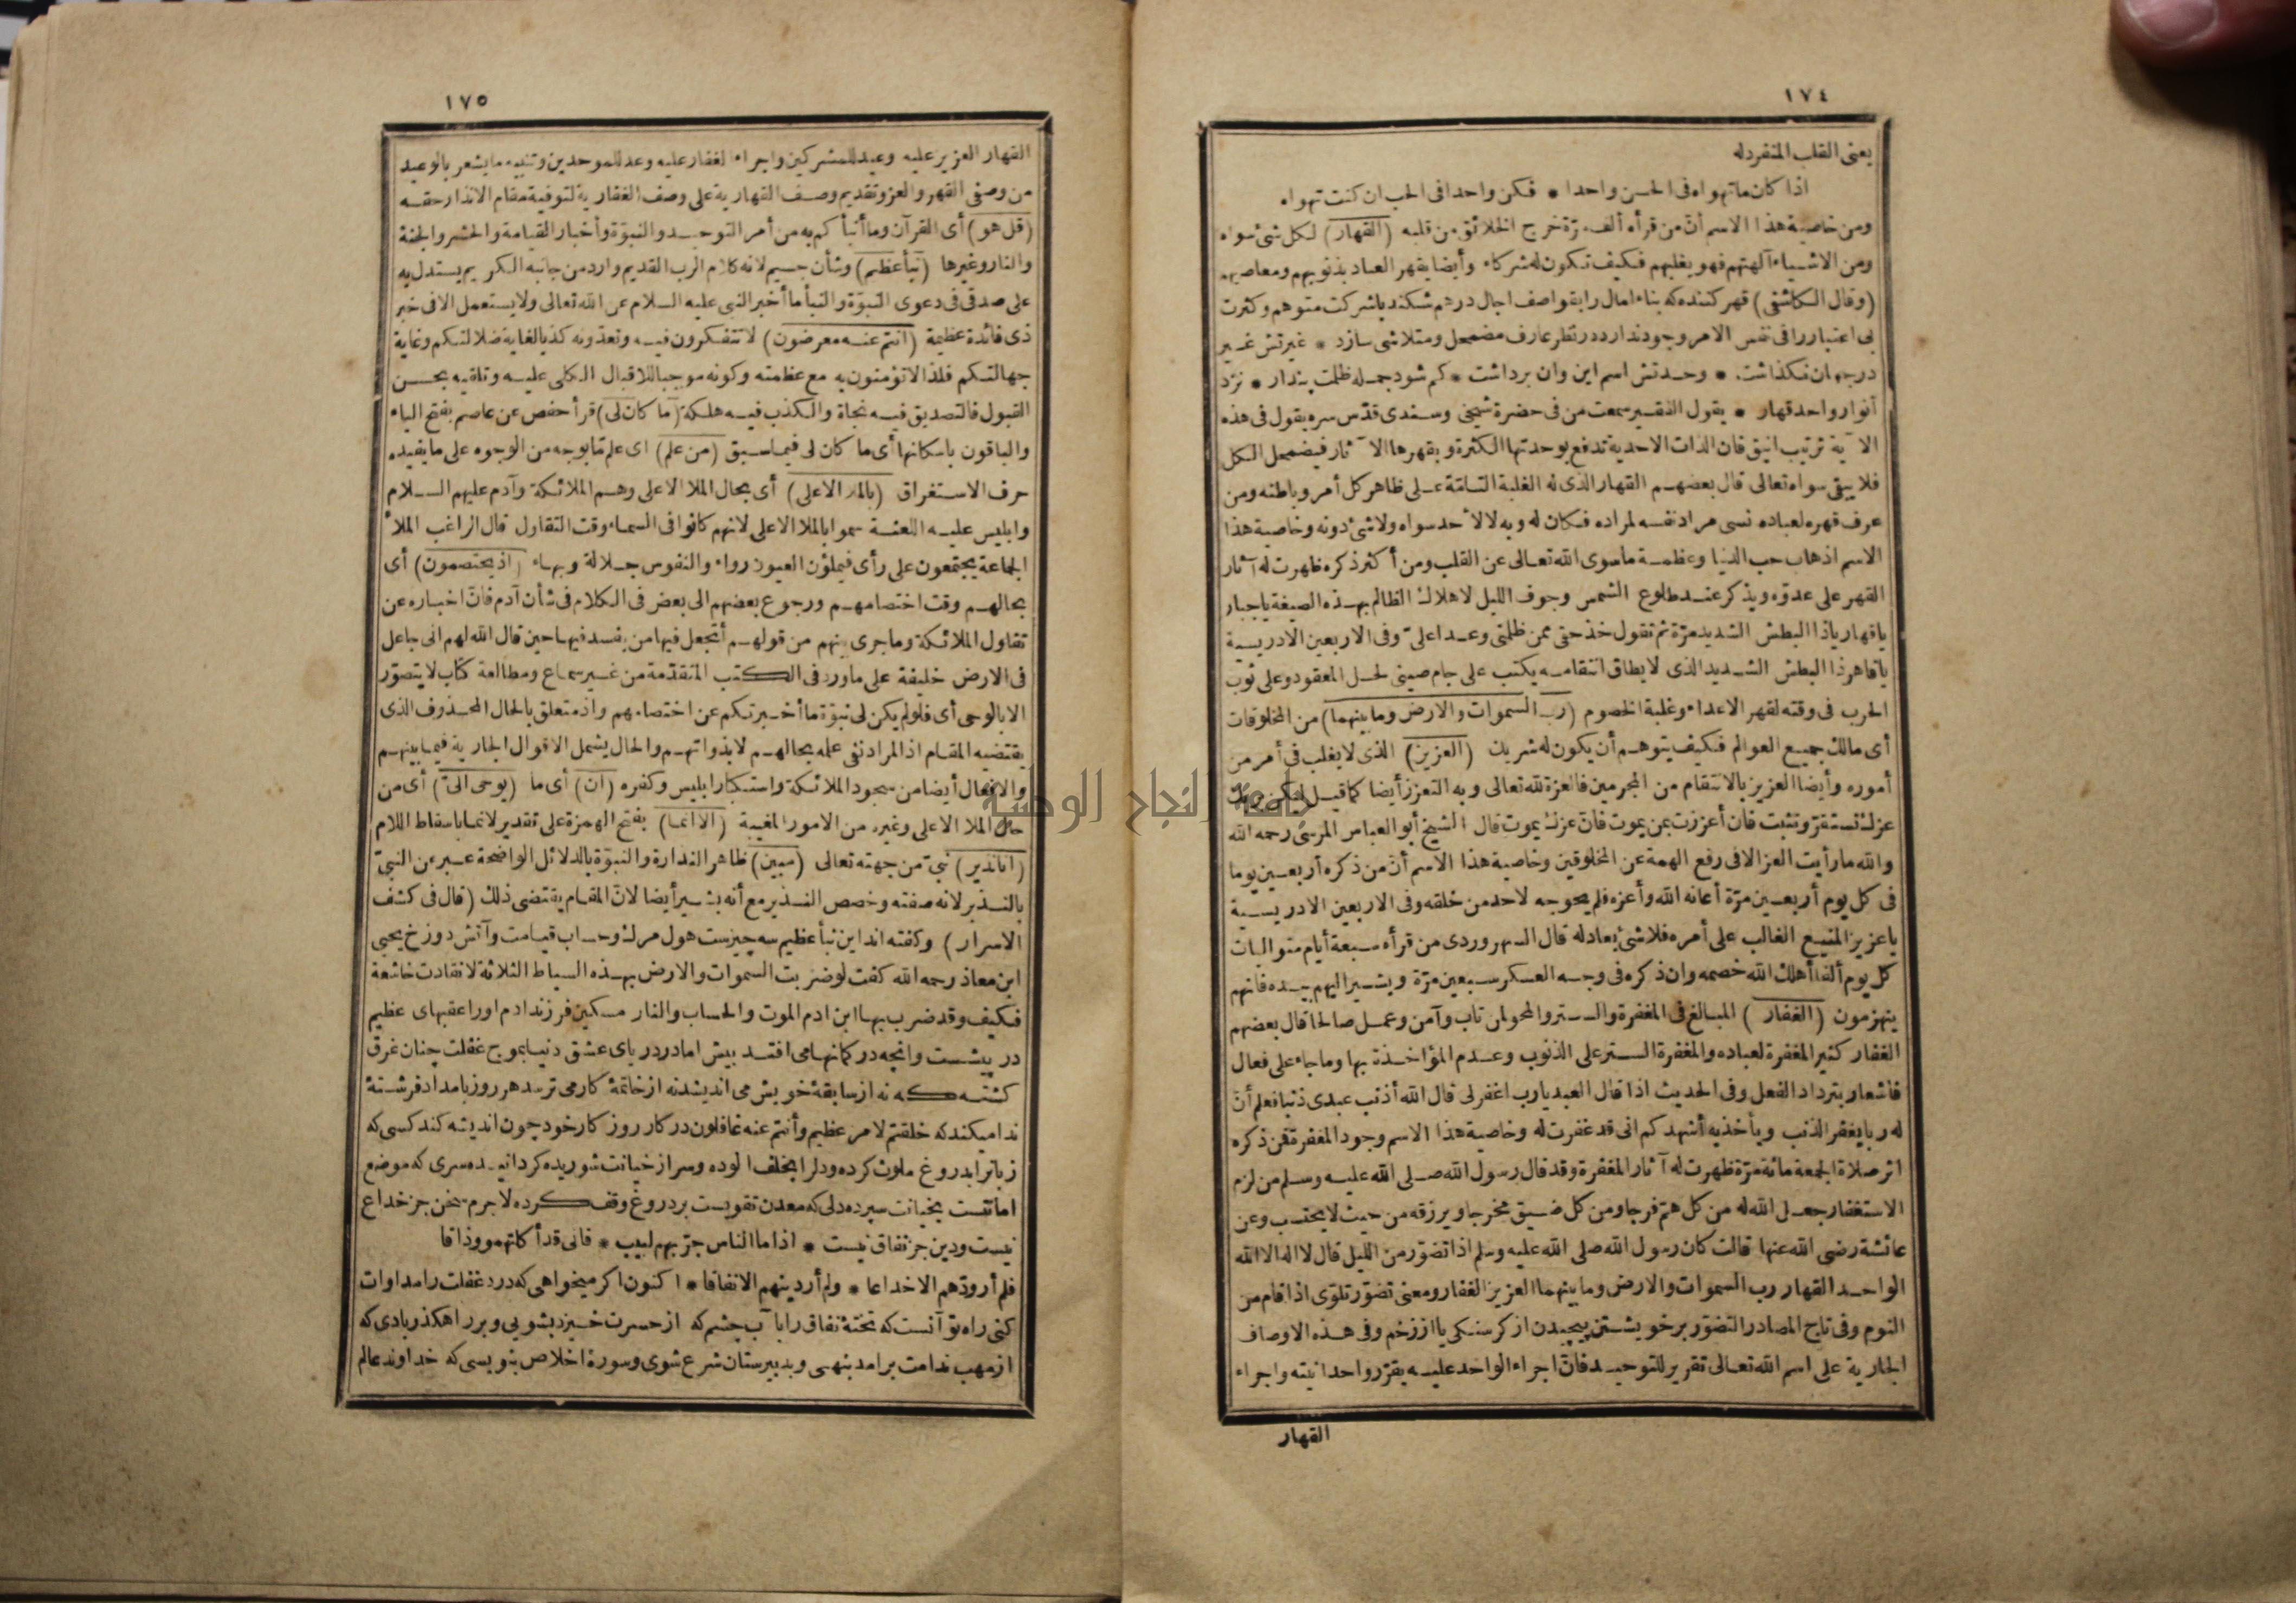 ١٧٤
يعنى القلب المتفرد له
اذا كان ما تهواه فى الحسن واحدا * فكن واحدا فى الحب ان كنت تهواه
ومن خاصية هذا الاسم أن من قرأه ألف مرّة خرج الخلائق من قلبه (القهار) لكل شئ سواه
ومن الاشياء آلهتهم فهو يغلبهم فكيف تكون له شركاء وأيضا يقهر العباد بذنوبهم ومعاصيهم
(وقال الكاشفى) قهر كننده كه بناء امال را بقواصف اجال درهم شكند يا شركت متوهم وكثرت
بى اعتبار را فى نفس الامر وجود ندارد در نظر عارف مضمحل ومتلاشى سازد * غيرتش غير
درجهان نكذاشت * وحدتش اسم اين وان برداشت * كم شود جمله ظلمت پندار * نزد
أنوار واحد قهار * يقول الفقير سمعت من فى حضرة شيخى وسندى قدّس سره يقول فى هذه
الآية ترتيب انيق فان الذات الاحدية تدفع بوحدتها الكثرة وبقهرها الآثار فيضمحل الكل
فلا يبقى سواه تعالى قال بعضهم القهار الذى له الغلبة التامّة على ظاهر كل أمر وباطنه ومن
عرف قهره لعباده نسى مراد نفسه لمراده فكان له وبه لا لأحد سواه ولا شئ دونه وخاصية هذا
الاسم اذهاب حب الدنيا وعظمة ما سوى الله تعالى عن القلب ومن أكثر ذكره ظهرت له آثار
القهر على عدوّه ويذكر عند طلوع الشمس وجوف الليل لاهلاك الظالم بهذه الصيغة يا جبار
يا قهار يا ذا البطش الشديد مرّة ثم تقول خذ حقى ممن ظلمنى وعدا علىّ وفى الاربعين الادريسية
يا قاهر ذا البطش الشديد الذى لا يطاق انتقامه يكتب على جام صينى لحل المعقود وعلى ثوب
الحرب فى وقته لقهر الاعداء وغلبة الخصوم (رب السموات والارض وما بينهما) من المخلوقات
أى مالك جميع العوالم فكيف يتوهم أن يكون له شريك (العزيز) الذى لا يغلب فى أمر من
أموره وأيضا العزيز بالانتقام من المجرمين فالعزة لله تعالى وبه التعزز أيضا كما قيل ليكن بربك
عزك تستقرّ وتثبت فان أعززت بمن يموت فان عزك يموت قال الشيخ أبو العباس المرسى رحمه الله
والله ما رأيت العز الا فى رفع الهمة عن المخلوقين وخاصية هذا الاسم أن من ذكره أربعين يوما
فى كل يوم أربعين مرّة أعانه الله وأعزه فلم يحوجه لاحد من خلقه وفى الاربعين الادريسية
يا عزيز المنيع الغالب على أمره فلا شئ يعادله قال السهروردى من قرأه سبعة أيام متواليات
كل يوم ألفا أهلك الله خصمه وان ذكره فى وجه العسكر سبعين مرّة ويشير اليهم بيده فانهم
ينهزمون (الغفار) المبالغ فى المغفرة والستر والمحو لمن تاب وآمن وعمل صالحا قال بعضهم
الغفار كثير المغفرة لعباده والمغفرة الستر على الذنوب وعدم المؤاخذة بها وما جاء على فعال
فاشعار بترداد الفعل وفى الحديث اذا قال العبد يا رب اغفر لى قال الله أذنب عبدى ذنبا فعلم أن
له ربا يغفر الذنب ويأخذ به أشهدكم انى قد غفرت له وخاصية هذا الاسم وجود المغفرة فمن ذكره
اثر صلاة الجمعة مائة مرّة ظهرت له آثار المغفرة وقد قال رسول الله صلى الله عليه وسلم من لزم
الاستغفار جعل الله له من كل همّ فرجا ومن كل ضيق مخرجا ويرزقه من حيث لا يحتسب وعن
عائشة رضى الله عنها قالت كان رسول الله صلى الله عليه وسلم اذا تضوّر من الليل قال لا اله الا الله
الواحد القهار رب السموات والارض وما بينهما العزيز الغفار ومعنى تضوّر تلوّى اذا قام من
النوم وفى تاج المصادر التضوّر بر خويشتن پيچيدن از كرسنكى يا از زخم وفى هذه الاوصاف
الجارية على اسم الله تعالى تقرير للتوحيد فان اجراء الواحد عليه يقرّر وحدانيته واجراء
القهار
١٧٥
القهار العزيز عليه وعيد للمشركين واجراء الغفار عليه وعد للموحدين وتثنية ما يشعر بالوعيد
من وصفى القهر والعز وتقديم وصف القهارية على وصف الغفارية لتوفية مقام الانذار حقه
(قل هو) أى القرآن وما أنبأكم به من أمر التوحيد والنبوّة وأخبار القيامة والحشر والجنة
والنار وغيرها (نبأ عظيم) وشأن جسيم لانه كلام الرب القديم وارد من جانبه الكريم يستدل به
على صدقى فى دعوى النبوّة والنبأ ما أخبر النبى عليه السلام عن الله تعالى ولا يستعمل الا فى خبر
ذى فائدة عظيمة (أنتم عنه معرضون) لا تتفكرون فيه وتعدّونه كذبا لغاية ضلالتكم وغاية
جهالتكم فلذا لا تؤمنون به مع عظمته وكونه موجبا للاقبال الكلى عليه وتلقيه بحسن
القبول فالتصديق فيه نجاة والكذب فيه هلكة (ما كان لى) قرأ حفص عن عاصم بفتح الياء
والباقون باسكانها أى ما كان لى فيما سبق (من علم) اى علم مّا بوجه من الوجوه على ما يفيده
حرف الاستغراق (بالملأ الاعلى) أى بحال الملا الاعلى وهم الملائكة وآدم عليهم السلام
وابليس عليه اللعنة سموا بالملا الاعلى لانهم كانوا فى السماء وقت التقاول قال الراغب الملأ
الجماعة يجتمعون على رأى فيملؤن العيون رواء والنفوس جلالة وبهاء (اذ يختصمون) أى
بحالهم وقت اختصامهم ورجوع بعضهم الى بعض فى الكلام فى شأن آدم فان اخباره عن
تقاول الملائكة وما جرى بينهم من قولهم أتجعل فيها من يفسد فيها حين قال الله لهم انى جاعل
فى الارض خليفة على ما ورد فى الكتب المتقدّمة من غير سماع ومطالعة كتاب لا يتصوّر
الا بالوحى أى فلو لم يكن لى نبوّة ما أخبرتكم عن اختصامهم واذ متعلق بالحال المحذوف الذى
يقتضيه المقام اذ المراد نفى علمه بحالهم لا بذواتهم والحال يشمل الاقوال الجارية فيما بينهم
والافعال أيضا من سجود الملائكة واستكبار ابليس وكفره (ان) أى ما (يوحى الىّ) أى من
حال الملا الاعلى وغيره من الامور المغيبة (الا انما) بفتح الهمزة على تقدير لانما باسقاط اللام
(أنا نذير) نبىّ من جهته تعالى (مبين) ظاهر النذارة والنبوّة بالدلائل الواضحة عبر عن النبىّ
بالنذير لانه صفته وخصص النذير مع أنه بشير أيضا لان المقام يقتضى ذلك (قال فى كشف
الاسرار) وكفته اند اين نبأ عظيم سه چيزست هول مرك وحساب قيامت وآتش دوزخ يحيى
ابن معاذ رحمه الله كفت لو ضربت السموات والارض بهذه السياط الثلاثة لانقادت خاشعة
فكيف وقد ضرب بها ابن ادم الموت والحساب والنار مسكين فرزند ادم اورا عقبهاى عظيم
در پيشست وانچه در كمانها مى افتد بيش اما در درياى عشق دنيا بموج غفلت چنان غرق
كشته كه نه از سابقۀ خويش مى انديشد نه از خاتمۀ كار مى ترسد هر روز بامداد فرشتۀ
ندا ميكند كه خلقتم لامر عظيم وأنتم عنه غافلون در كار روز كار خود چون انديشه كند كسى كه
زبانرا بدروغ ملوث كرده ودلرا بخلف الوده وسر از خيانت شوريده كردانيده سرى كه موضع
امانتست بخيانت سپرده دلى كه معدن تقويست بردروغ وقف كرده لاجرم سخن جز خداع
نيست ودين جز نفاق نيست * اذا ما الناس جرّبهم لبيب * فانى قد أكلتهمو وذاقا
فلم أر ودّهم الا خداعا * ولم أر دينهم الا نفاقا * اكنون اكر ميخواهى كه درد غفلت را مداوات
كنى راه تو آنست كه تختۀ نفاق را بآب چشم كه از حسرت خيزد بشويى وبر راهكذر بادى كه
از مهب ندامت برامد بنهى وبدبيرستان شرع شوى وسورۀ اخلاص بنويسى كه خداوند عالم
جامعة النجاح الوطنية